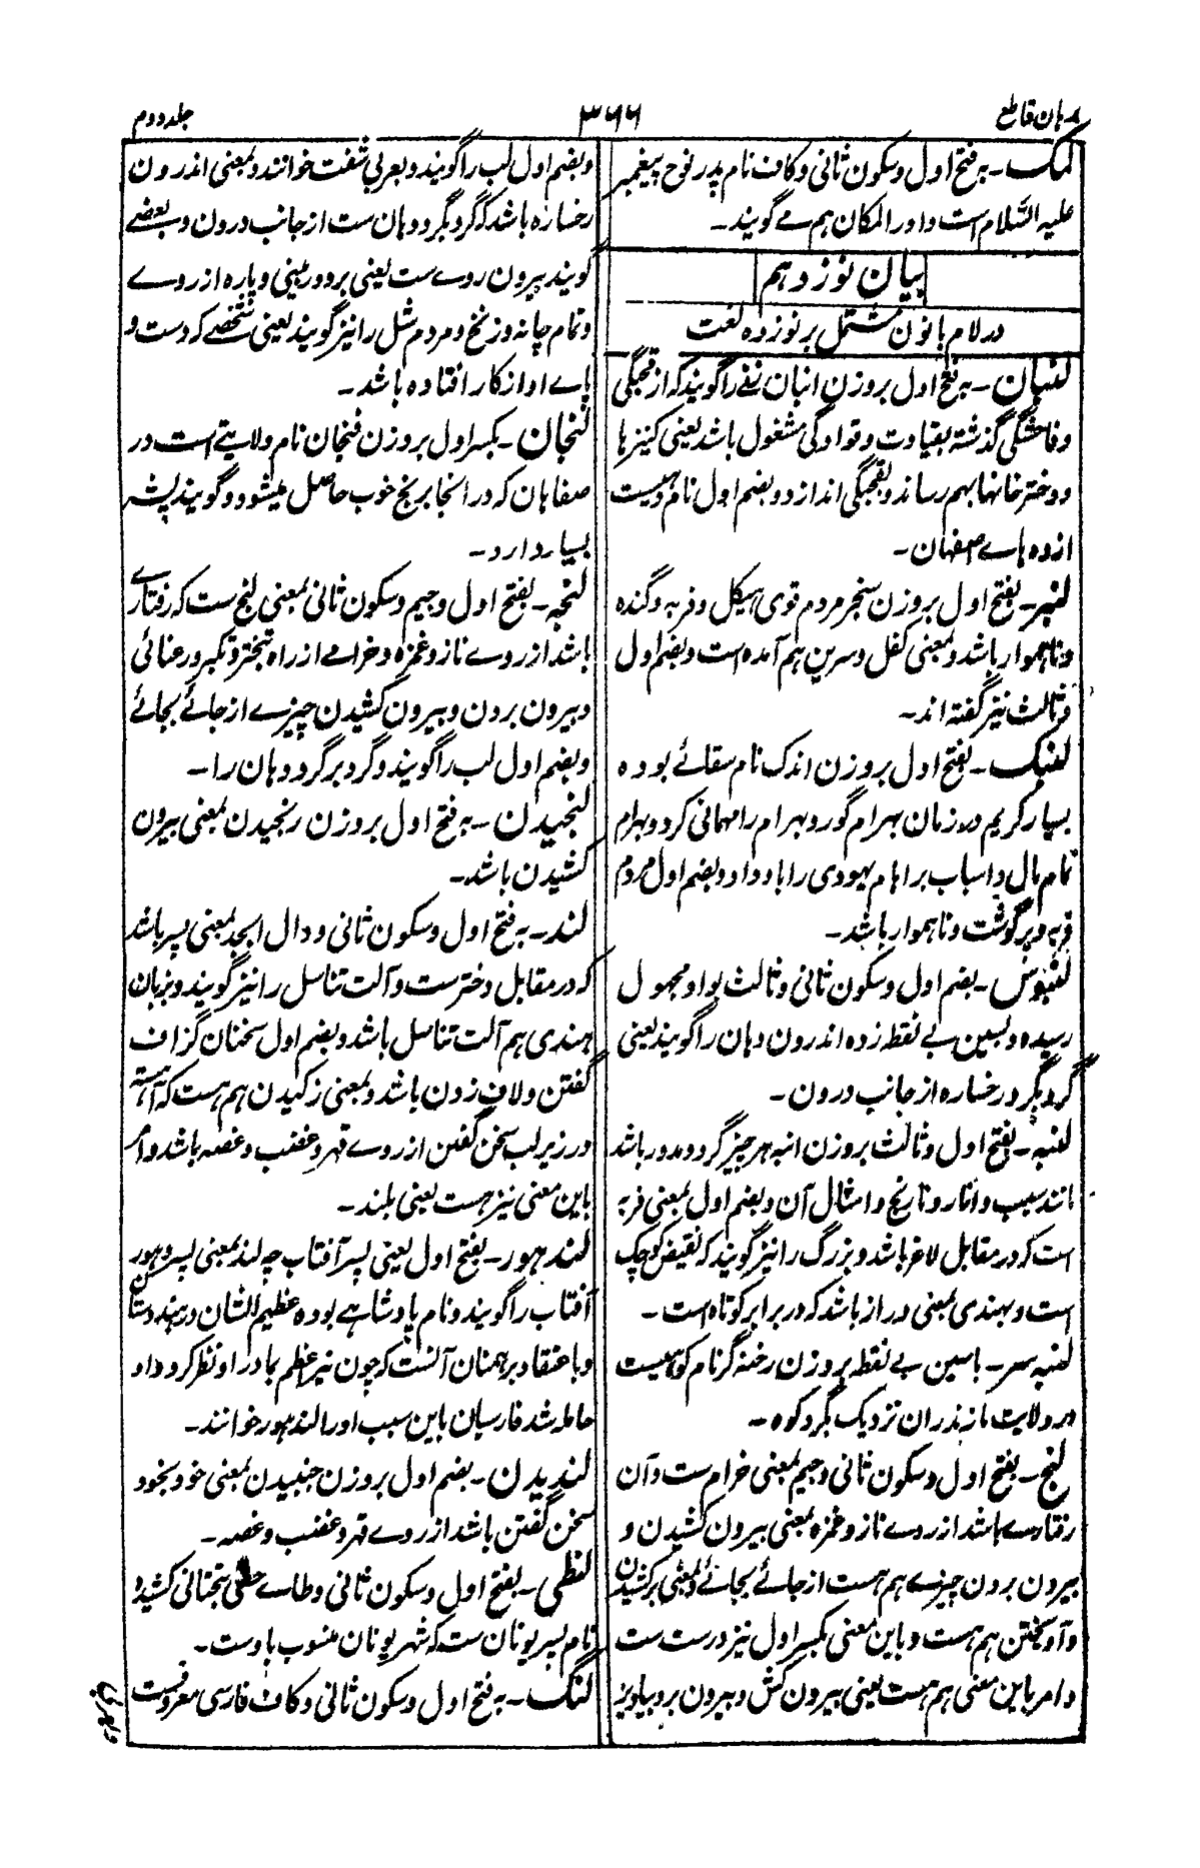 برهان قاطع
۳۶۶
جلد دوم
لمک ـ به فتح اول و سکون ثانی و کاف نام پدر نوح پیغمبر
علیه السّلام است و او را لمکان هم مے گویند ـ
بیان نوزدهم
در لام با نون مشتمل بر نوزده لغت
لنبان ـ به فتح اول بروزن انبان زنے را گویند که از قحبگی
و فاحشگی گذشته بقیادت و قوادگی مشغول باشد یعنی کنیزها
و دختر خانها بهم رساند و بقحبگی اندازد و بضم اول نام دهیست
از ده هاے صفهان ـ
لنبر ـ بفتح اول بروزن سنجر مردم قوی هیکل و فربه و گنده
و ناهموار باشد و بمعنی کفل و سرین هم آمده است و بضم اول
و ثالث نیز گفته اند ـ
لنبک ـ بفتح اول بروزن اندک نام سقائے بوده
بسیار کریم در زمان بهرام گور و بهرام را مهمانی کرد و بهرام
تمام مال و اسباب براهام یهودی را باو داد و بضم اول مردم
فربه و پر گوشت و ناهموار باشد ـ
لنبوس ـ بضم اول و سکون ثانی و ثالث بواو مجهول
رسیده و بسین بے نقطه زده اندرون دهان را گویند یعنی
گرد بگرد رخساره از جانب درون ـ
لنبه ـ بفتح اول و ثالث بروزن انبه هر چیز گرد و مدور باشد
مانند سیب و انار و نارنج و امثال آن و بضم اول بمعنی فربه
است که در مقابل لاغر باشد و بزرگ را نیز گویند که نقیض کوچک
است و بهندی بمعنی دراز باشد که در برابر کوتاه است ـ
لنبه سر ـ باسین بے نقطه بروزن رخنه گر نام کوهیست
در ولایت مازندران نزدیک بگرد کوه ـ
لنج ـ بفتح اول و سکون ثانی و جیم بمعنی خرام ست و آن
رفتارے باشد از روے ناز و غمزه بمعنی بیرون کشیدن و
بیرون بردن چیزے هم هست از جائے بجائے و بمعنی برکشیدن
و آویختن هم هست و باین معنی بکسر اول نیز درست ست
و امر باین معنی هم هست یعنی بیرون کش و بیرون بر و بیاویز
و بضم اول لب را گویند و بعربی شفت خوانند و بمعنی اندرون
رخساره باشد که گرد بگرد دهان ست از جانب درون و بعضے
گویند بیرون روے ست یعنی بر دور بینی و پاره از روے
و تمام چانه و زنخ و مردم شل را نیز گویند یعنی شخصے که دست و
پاے او از کار افتاده باشد ـ
لنجان ـ بکسر اول بروزن فنجان نام ولایتے است در
صفاهان که در انجا برنج خوب حاصل میشود و گویند پشه
بسیار دارد ـ
لنجه ـ بفتح اول و جیم و سکون ثانی بمعنی لنج ست که رفتارے
باشد از روے ناز و غمزه و خرامے از راه تبختر و تکبر و رعنائی
و بیرون بردن و بیرون کشیدن چیزے از جائے بجائے
و بضم اول لب را گویند و گرد بر گرد دهان را ـ
لنجیدن ـ به فتح اول بروزن رنجیدن بمعنی بیرون
کشیدن باشد ـ
لند ـ به فتح اول و سکون ثانی و دال ابجد بمعنی پسر باشد
که در مقابل دختر ست و آلت تناسل را نیز گویند و بزبان
هندی هم آلت تناسل باشد و بضم اول سخنان گزاف
گفتن و لاف زدن باشد و بمعنی زکیدن هم هست که آهسته
در زیر لب سخن گفتن از روے قهر و غضب و غصه باشد و امر
باین معنی نیز هست یعنی بلند ـ
لندهور ـ بفتح اول یعنی پسر آفتاب چه لند بمعنی پسر و هور
آفتاب را گویند و نام پادشاهے بوده عظیم الشان در هندوستان
و باعتقاد برهمنان آنست که چون نیر اعظم بمادر او نظر کرد و او
حامله شد فارسیان باین سبب او را لندهور خوانند ـ
لندیدن ـ بضم اول بروزن جنبیدن بمعنی خود بخود
سخن گفتن باشد از روے قهر و غضب و غصه ـ
لنطی ـ بفتح اول و سکون ثانی و طاے حطی بتحتانی کشیده
نام پسر یونان ست که شهر یونان منسوب باوست ـ
لنگ ـ به فتح اول و سکون ثانی و کاف فارسی معروفست